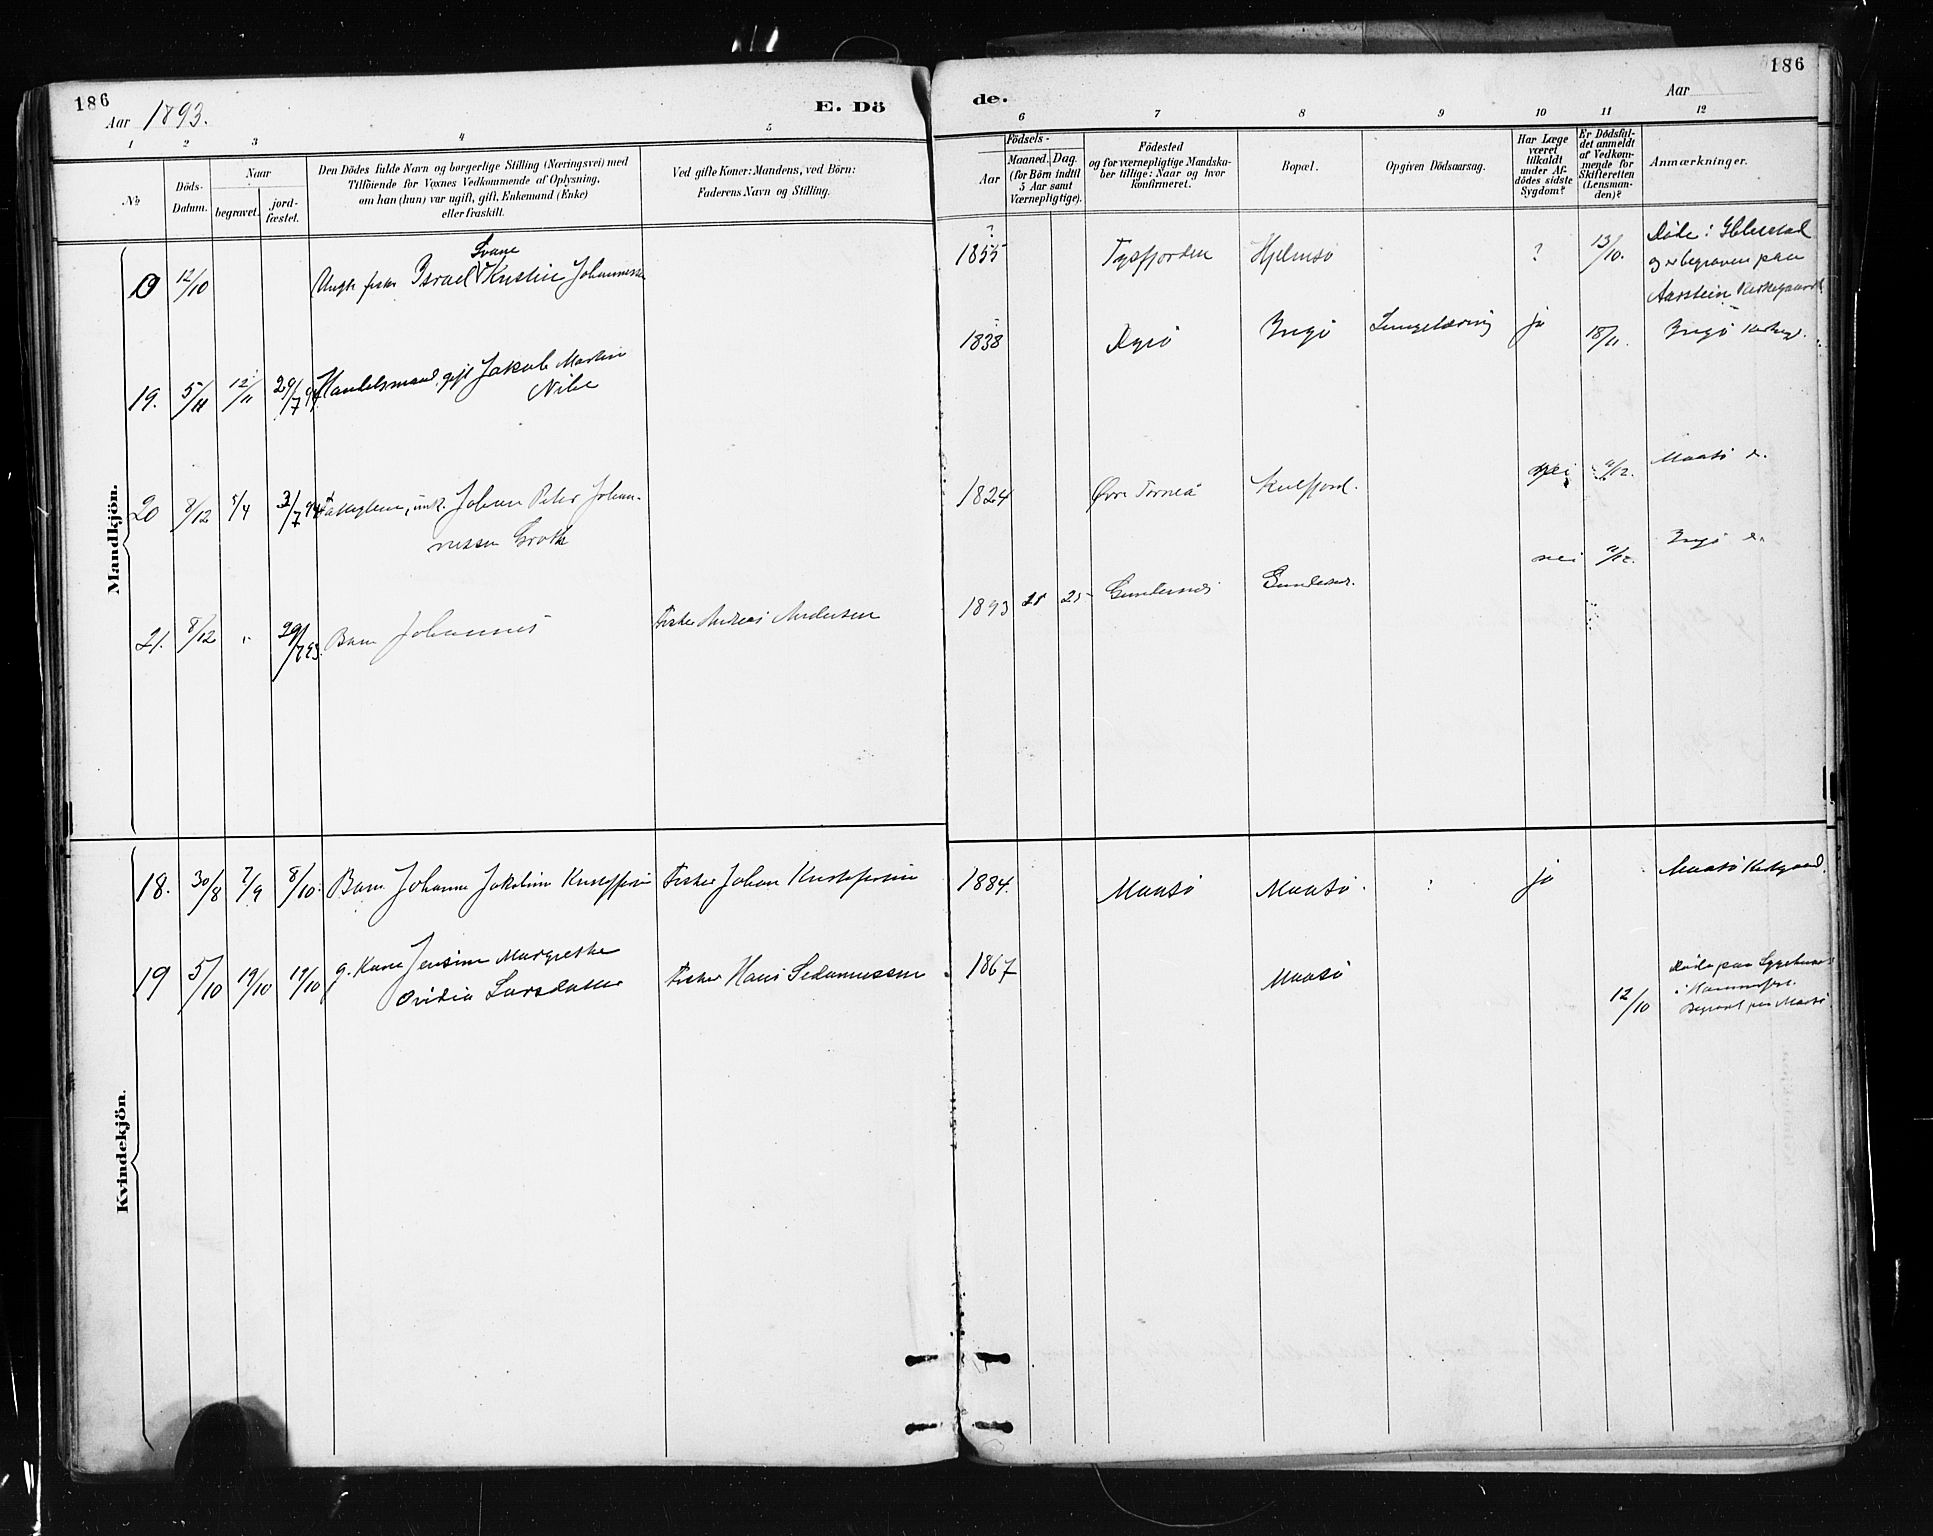 186
Aar 1893.
E. Dö
1 2 3 4 5
Nº
Döds-Datum.
Naar
begravet.
jord-fæstet.
Den Dödes fulde Navn og borgerlige Stilling (Næringsvei) med
Tilföiende for Voxnes Vedkommende af Oplysning,
om han (hun) var ugift, gift, Enkemand (Enke)
eller fraskilt.
Ved gifte Koner: Mandens, ved Börn:
Faderens Navn og Stilling.
Mandkjön.
Svane
12/10 Ungk. fisker Israel Kristin Johannessen
19. 5/11 12/11 29/7 94 Handelsmand, gift Jakob Martin
Nibe
20 8/12 5/4 3/7 94 unk. Johan Peter Johan-
nessen Groth
21. 8/12 " 29/7 93 Barn Johannes Fisker Andreas Andersen
Kvindekjön.
18. 30/8 7/9 8/10 Barn Johanna Jakobine Fisker Johan
19 5/10 19/10 19/10 g. Kone Jensine Margrethe Fisker Hans
Ovidia Larsdatter
de.
186
Aar
6 7 8 9 10 11 12
Födsels-
Aar
Maaned. Dag.
(for Börn indtil
5 Aar samt
Værnepligtige).
Födested
og for værnepligtige Mandska-
ber tillige: Naar og hvor
konfirmeret.
Bopæl.
Opgiven Dödsaarsag.
Har Læge
været
tilkaldt
under Af-
dödes sidste
Sygdom?
Er Dødsfal-
det anmeldt
af Vedkom-
mende for
Skifteretten
(Lensman-
den)?
Anmærkninger.
?
1855 Tysfjorden Hjelmsö ? 13/10. Døde i
og er begraven paa
Aarstein Kirkegaard
1838 Ingö ja 18/11. Ingö Kirkeg.
1824 Øvre Torneå nei 11/12. Maasö d.
1893 25 nei 11/12. Ingö d.
1884. Maasö Maasö. ja Maasö
1867 Maasö 12/10 Døde paa Sygehuset
i Hammerfest.
Begravet paa Maasö